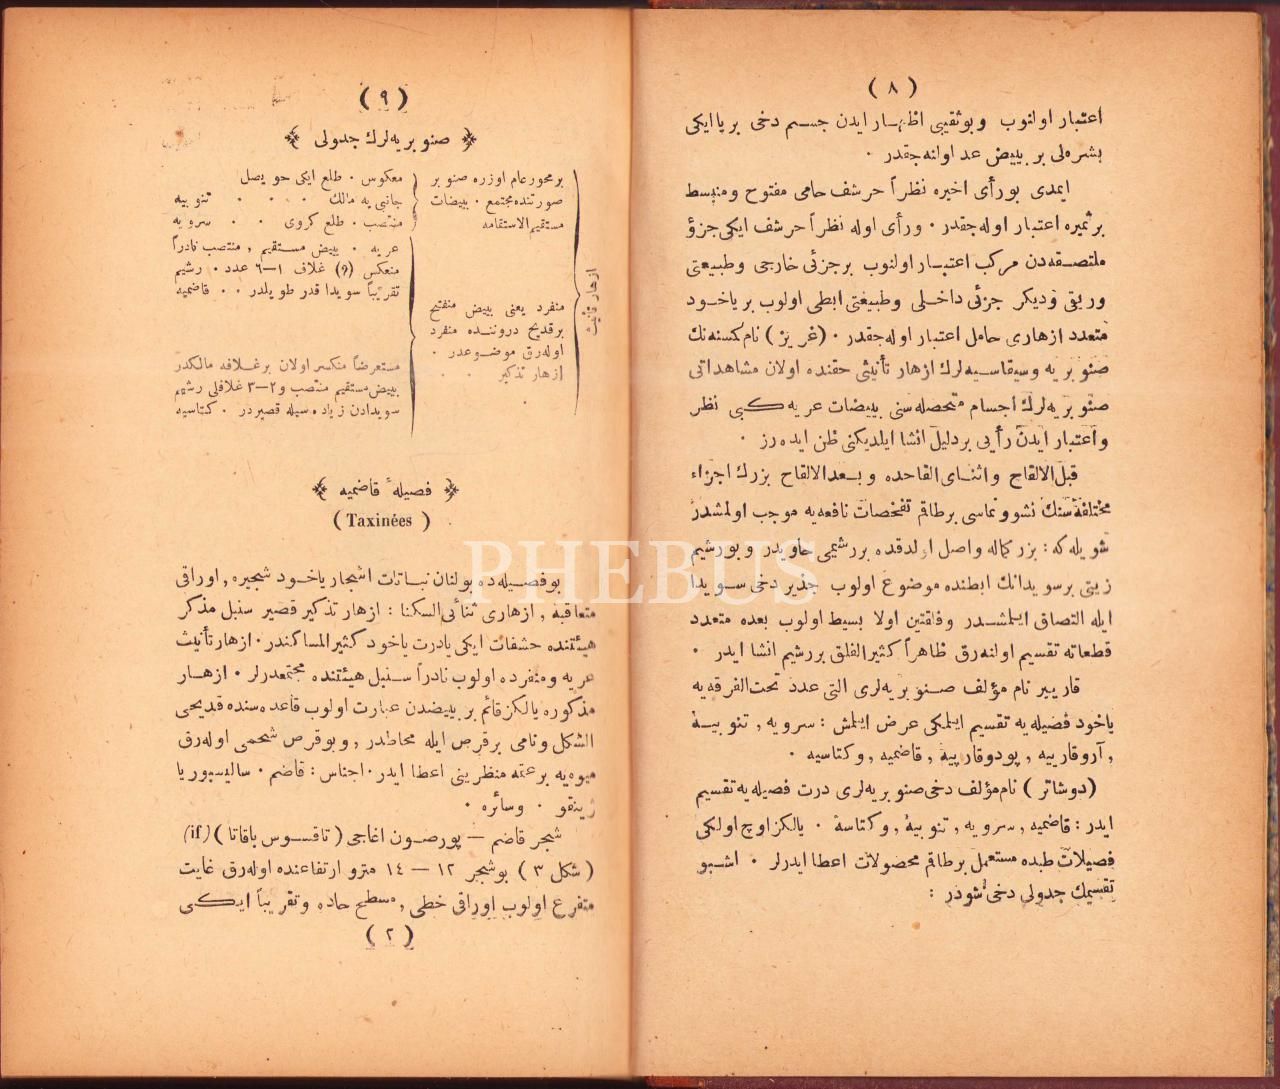 ( ٨ )
اعتبار اولنوب وبوثقیبی اظهار ایدن جسم دخی بر یا ایکی
بشره‌لی بر بییض عد اولنه‌جقدر .
ایمدی بورأی اخیره نظراً حرشف حامی مفتوح ومنبسط
بر ثمیره اعتبار اوله‌جقدر . ورأی اوله نظراً حرشف ایکی جزؤ
ملتصقه‌دن مرکب اعتبار اولنوب بر جزئی خارجی وطبیعتی
وریقی ودیکر جزئی داخلی وطبیعتی ابطی اولوب بر یاخود
متعدد ازهاری حامل اعتبار اوله‌جقدر . (غریز) نام کمسنه‌نك
صنوبریه وسیقاسیه‌لرك ازهار تأنیثی حقنده اولان مشاهداتی
صنوبریه‌لرك اجسام متحصله‌سنی بییضات عریه کبی نظر
واعتبار ایدن رأیی بر دلیل انشا ایلدیکنی ظن ایده‌رز .
قبل‌الالقاح واثنای القاحده وبعدالالقاح بزرك اجزاء
مختلفه‌سنك نشو ونماسی بر طاقم تفحصات نافعه‌یه موجب اولمشدر
شویله‌که : بزر کماله واصل اولدقده بر رشیمی حاویدر وبورشیم
زیتی بر سویدانك ابطنده موضوع اولوب جذیر دخی سویدا
ایله التصاق ایلمشدر وفلقتین اولا بسیط اولوب بعده متعدد
قطعاته تقسیم اولنه‌رق ظاهراً کثیرالفلق بر رشیم انشا ایدر .
قاریبر نام مؤلف صنوبریه‌لری التی عدد تحت‌الفرقه‌یه
یاخود فصیله‌یه تقسیم ایلمکی عرض ایلمش : سرویه , تنوبیه
, آروقاریه , پودوقارپیه , قاضمیه , وکتاسیه .
(دوشاتر) نام مؤلف دخی صنوبریه‌لری درت فصیله‌یه تقسیم
ایدر : قاضمیه , سرویه , تنوبیه , وکتاسه . یالکز اوچ اولکی
فصیلات طبده مستعمل بر طاقم محصولات اعطا ایدرلر . اشبو
تقسیمك جدولی دخی شودر :
( ٩ )
صنوبریه‌لرك جدولی
ازهار تأنیث
بر محور عام اوزره صنوبر
صورتنده مجتمع . بییضات
مستقیم‌الاستقامه
معکوس . طلع ایکی حویصل
جانبی‌یه مالك . . . تنوبیه
منتصب . طلع کروی . . سرویه
منفرد یعنی بییض منفتح
بر قدیح دروننده منفرد
اوله‌رق موضوعدر .
ازهار تذکیر . .
عریه . بییض مستقیم , منتصب نادراً
منعکس (٩) غلاف ١—٦ عدد . رشیم
تقریباً سویدا قدر طویلدر . . قاضمیه
مستعرضاً منکسر اولان بر غلافه مالکدر
بییض مستقیم منتصب و ٢—٣ غلافلی رشیم
سویدادن زیاده‌سیله قصیردر . کتاسیه
فصیلهٔ قاضمیه
( Taxinées )
بو فصیله‌ده بولنان نباتات اشجار یاخود شجیره , اوراقی
متعاقبه , ازهاری ثنائی‌السکنا : ازهار تذکیر قصیر سنبل مذکر
هیئتنده حشفات ایکی یا درت یاخود کثیرالمساکندر . ازهار تأنیث
عریه ومنفرده اولوب نادراً سنبل هیئتنده مجتمعدرلر . ازهار
مذکوره یالکز قائم بر بییضدن عبارت اولوب قاعده‌سنده قدیحی
الشکل ونامی بر قرص ایله محاطدر , وبو قرص شحمی اوله‌رق
میوه‌یه بر عتبه منظرینی اعطا ایدر . اجناس : قاضم . سالیسبوریا
ژینقو . وسائره .
شجر قاضم — پورصون اغاجی (تاقسوس باقاتا) (if)
( شکل ٣ ) بو شجر ١٢ — ١٤ مترو ارتفاعنده اوله‌رق غایت
متفرع اولوب اوراقی خطی , مسطح حاده وتقریباً ایکی
( ٢ )
PHEBUS